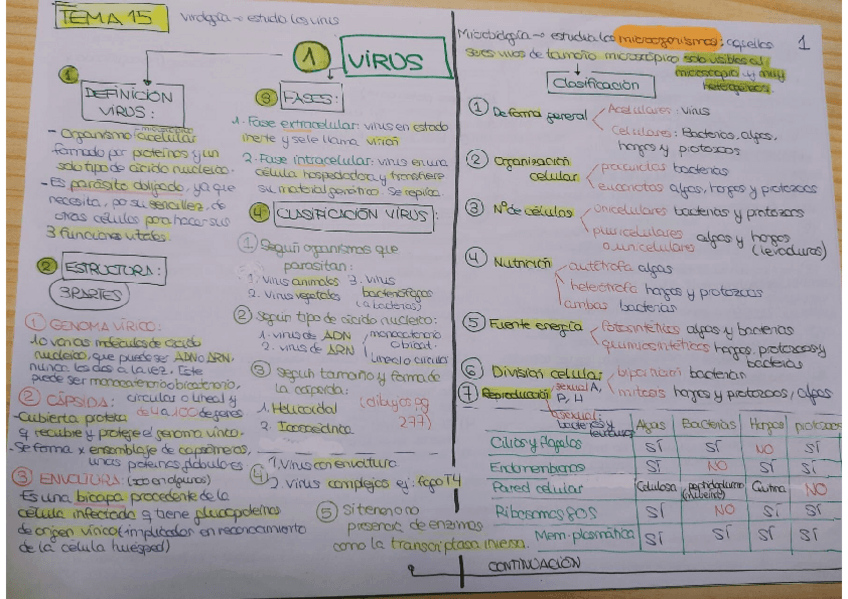 TEMA 15
Virología → estudio los virus
1 VIRUS
1 DEFINICIÓN
VIRUS:
- Organismo acelular
formado por proteínas y un
solo tipo de ácido nucleico.
- Es parásito obligado, ya que
necesita, por su sencillez, de
otras células para hacer sus
3 funciones vitales.
2 ESTRUCTURA:
3 PARTES
1 GENOMA VÍRICO:
1 o varias moléculas de ácido
nucleico, que puede ser ADN o ARN,
nunca los dos a la vez. Este
puede ser monocatenario o bicatenario,
circular o lineal y
de 4 a 100 de genes
2 CÁPSIDA:
- Cubierta proteica
q recubre y protege el genoma vírico.
- Se forma x ensamblaje de capsómeros,
unas proteínas globulares
3 ENVOLTURA: (solo en algunos)
Es una bicapa procedente de la
célula infectada q tiene glucoproteínas
de origen vírico (implicadas en reconocimiento
de la célula huésped)
3 FASES:
1. Fase extracelular: virus en estado
inerte y se le llama virión
2. Fase intracelular: virus en una
célula hospedadora y transfiere
su material genético. Se replica.
4 CLASIFICACIÓN VIRUS:
1 Según organismos que
parasitan:
1. Virus animales 3. Virus
2. Virus vegetales bacteriófagos
(a bacterias)
2 Según tipo de ácido nucleico:
1. virus de ADN monocatenario
2. virus de ARN o bicat.
lineal o circular
3 Según tamaño y forma de
la cápsida:
1. Helicoidal (dibujos pg
2. Icosaédrica 277)
4 1. Virus con envoltura
2. Virus complejos ej: fago T4
5 Si tenen o no
presencia de enzimas
como la transcriptasa inversa.
Microbiología → estudia los microorganismos: aquellos 1
seres vivos de tamaño microscópico solo visibles al
microscopio y muy
heterogéneos.
Clasificación
1 De forma general Acelulares: virus
Celulares: Bacterias, algas,
hongos y protozoos
2 Organización procariotas bacterias
celular eucariotas algas, hongos y protozoos
3 Nº de células unicelulares bacterias y protozoos
pluricelulares algas y hongos
o unicelulares (levaduras)
4 Nutrición autótrofa algas
heterótrofa hongos y protozoos
ambas bacterias
5 Fuente energía fotosintéticos algas y bacterias
quimiosintéticos hongos, protozoos y
bacterias
6 División celular bipartición bacterias
mitosis hongos y protozoos, algas
7 Reproducción sexual A,
P, H
asexual:
bacterias y
levaduras
Algas Bacterias Hongos protozoos
Cilios y flagelos SÍ SÍ NO SÍ
Endomembranas SÍ NO SÍ SÍ
Pared celular Celulosa peptidoglucano (mureína) Quitina NO
Ribosomas 80S SÍ NO SÍ SÍ
Mem. plasmática SÍ SÍ SÍ SÍ
CONTINUACIÓN